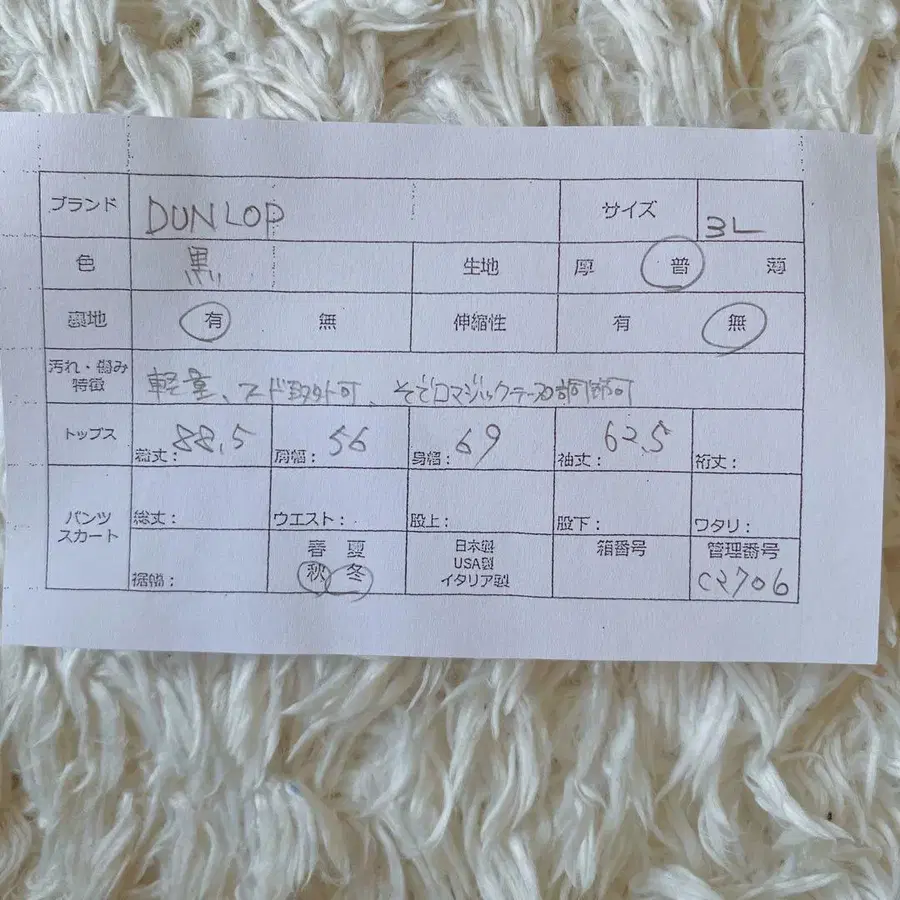 ブランド DUNLOP サイズ 3L
色 黒 生地 厚 普 薄
裏地 有 無 伸縮性 有 無
汚れ・傷み
特徴 軽量、フード取外し可、そで口マジックテープ調節可
トップス 着丈: 88.5 肩幅: 56 身幅: 69 袖丈: 62.5 裄丈:
パンツ
スカート 総丈: ウエスト: 股上: 股下: ワタリ:
裾幅: 春 夏
秋 冬
日本製
USA製
イタリア製
箱番号 管理番号
C2706